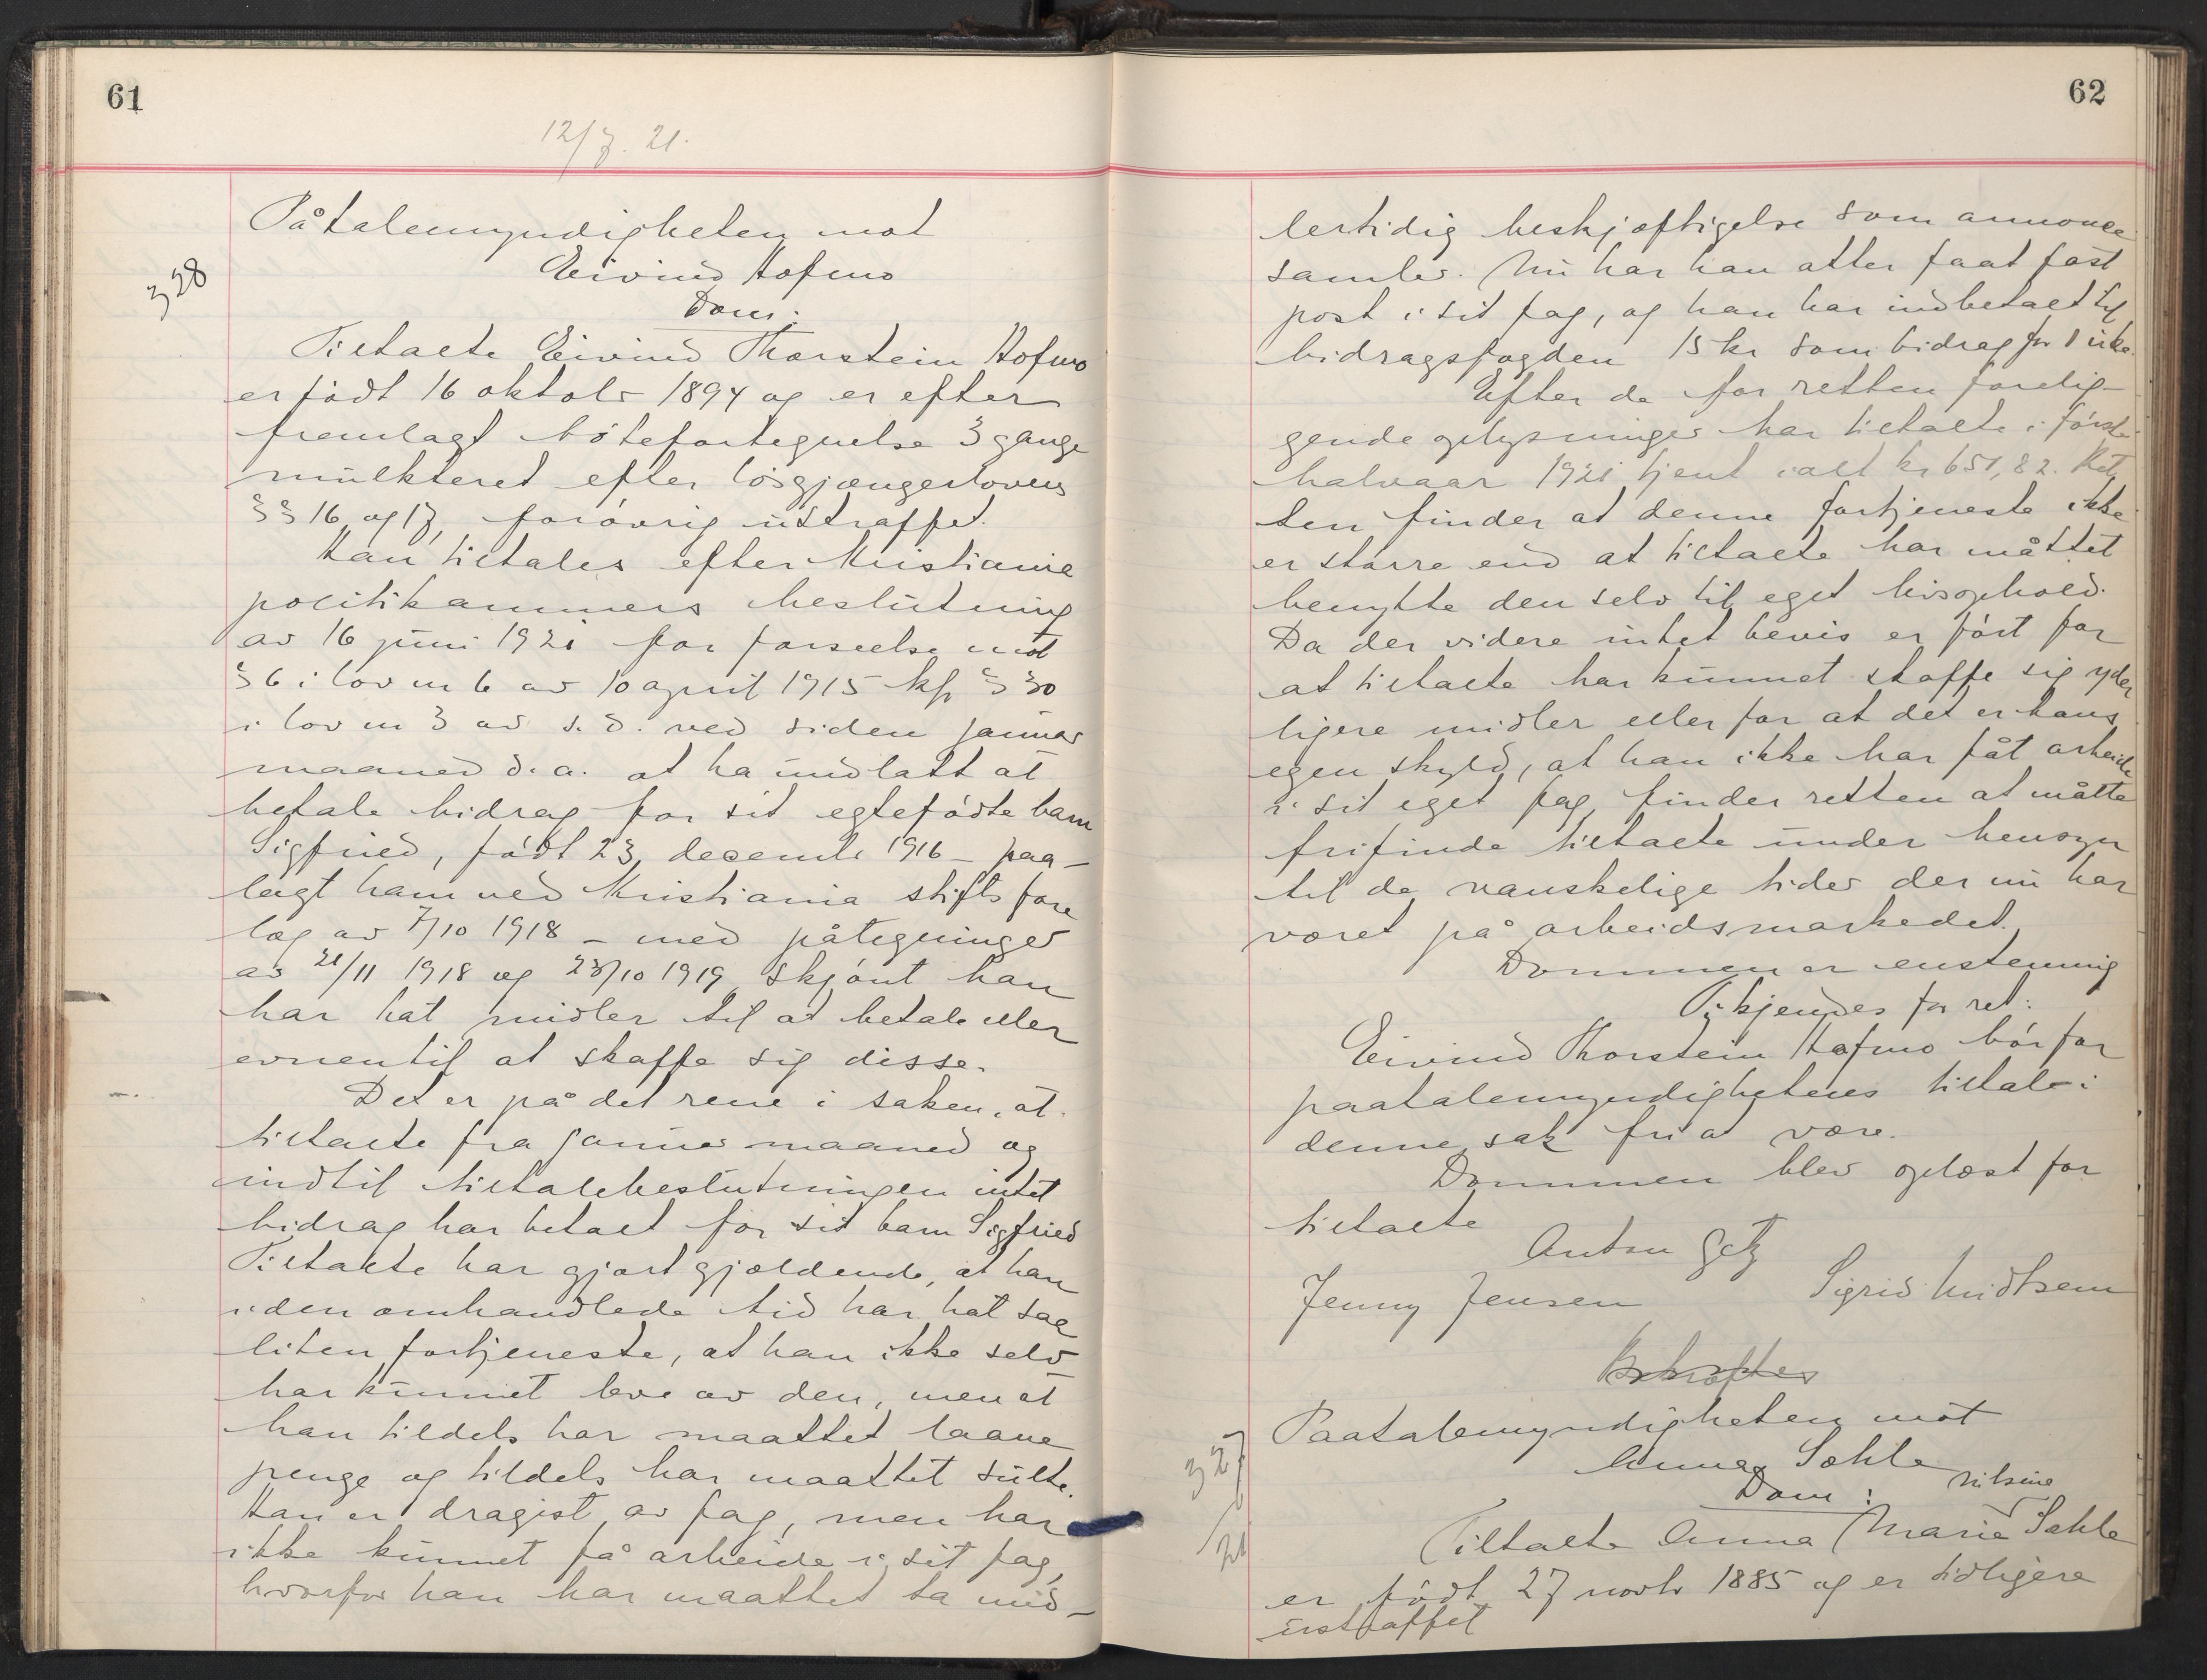 61
12/7. 21.
328
Påtalemyndigheten mot
Eivind Hofmo
Dom:
Tiltalte Eivind Thorstein Hofmo
er født 16 oktobr 1894 og er efter
fremlagt bøtefortegnelse 3 gange
mulkteret efter løsgjængerlovens
§§ 16 og 17, forøvrig ustraffet.
Han tiltales efter Kristiania
politikammers beslutning
av 16 juni 1921 for forseelse mot
§ 6 i lov nr 6 av 10 april 1915 kfr § 30
i lov nr 3 av s. d. ved siden januar
maaned d. a. at ha undlatt at
betale bidrag for sit egtefødte barn
Sigfried, født 23 decembr 1916 – paa-
lagt ham ved Kristiania stifts fore
læg av 7/10 1918 – med påtegninger
av 21/11 1918 og 23/10 1919, skjønt han
har hat midler til at betale eller
evnen til at skaffe sig disse.
Det er på det rene i saken, at
tiltalte fra januar maaned og
indtil tiltalebeslutningen intet
bidrag har betalt for sit barn Sigfried
Tiltalte har gjort gjældende, at han
i den omhandlede tid har hat saa
liten fortjeneste, at han ikke selv
har kunnet leve av den, men at
han tildels har maattet laane
penge og tildels har maattet sulte.
Han er dragist av fag, men har
ikke kunnet få arbeide i sit fag,
hvorfor han har maattet ta mid-
62
lertidig beskjæftigelse som annonce
samler. Nu har han atter faat fast
post i sit fag, og han har indbetalt til
bidragsfogden 15 kr som bidrag for 1 uke.
Efter de for retten forelig-
gende oplysninger har tiltalte i første
halvaar 1921 tjent ialt kr 651,82. Ret
ten finder at denne fortjeneste ikke
er større end at tiltalte har måttet
benytte den selv til eget livsophold.
Da der videre intet bevis er ført for
at tiltalte har kunnet skaffe sig yder
ligere midler eller for at det er hans
egen skyld, at han ikke har fåt arbeide
i sit eget fag, finder retten at måtte
frifinde tiltalte under hensyn
til de vanskelige tider der nu har
været på arbeidsmarkedet.
Dommen er enstemmig
Ti kjendes for ret:
Eivind Thorstein Hofmo bør for
paatalemyndighetens tiltale i
denne sak fri at være.
Dommen blev oplæst for
tiltalte
Anton Getz
Jenny Jensen Sigrid
Bekræftes
Paatalemyndigheten mot
327
Anna Sahle
Dom: Nilsine
Tiltalte Anna Marie Sahle
er født 27 novbr 1885 og er tidligere
ustraffet